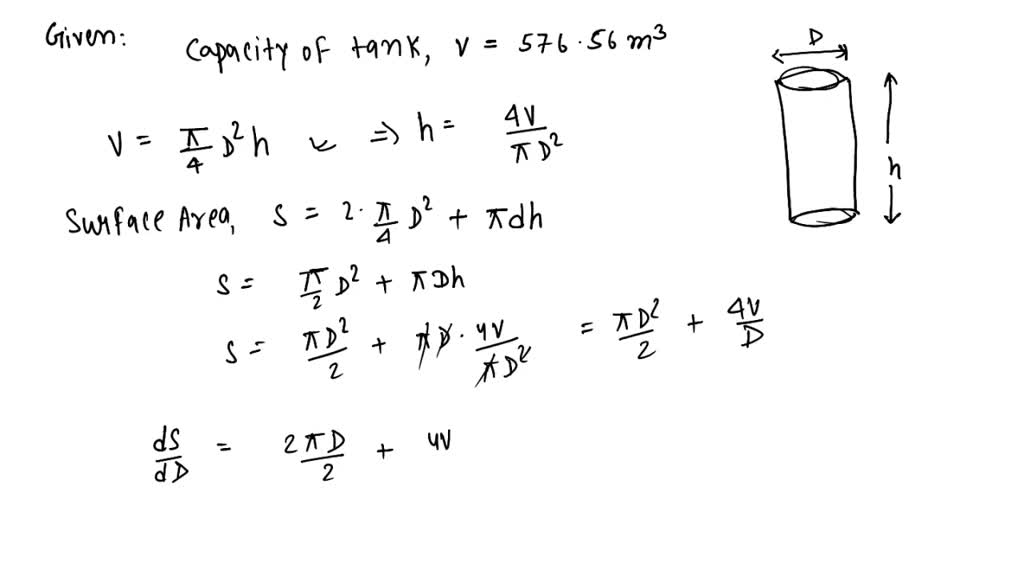 Given:
Capacity of tank, V = 576.56 m³
D
V = π/4 D² h ⇒ h = 4V/πD²
h
Surface Area, S = 2·π/4 D² + πdh
S = π/2 D² + πDh
S = πD²/2 + πD · 4V/πD² = πD²/2 + 4V/D
dS/dD = 2πD/2 + 4V